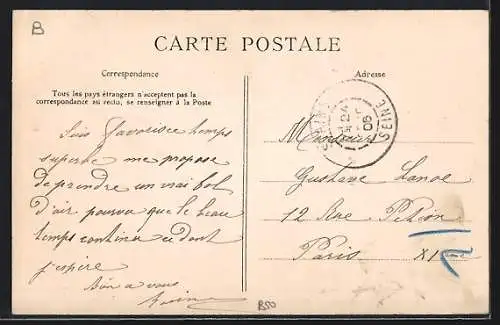 B
CARTE POSTALE
Correspondance
Adresse
Tous les pays étrangers n'acceptent pas la
correspondance au recto, se renseigner à la Poste
SEINE
24
08
Suis favorisée temps
superbe me propose
de prendre un vrai bol
d'air pourvu que le beau
temps continu ce dont
j'espère
Bon a vous
Monsieur
Gustave Lanoe
12 Rue Pétion
Paris XI
B50